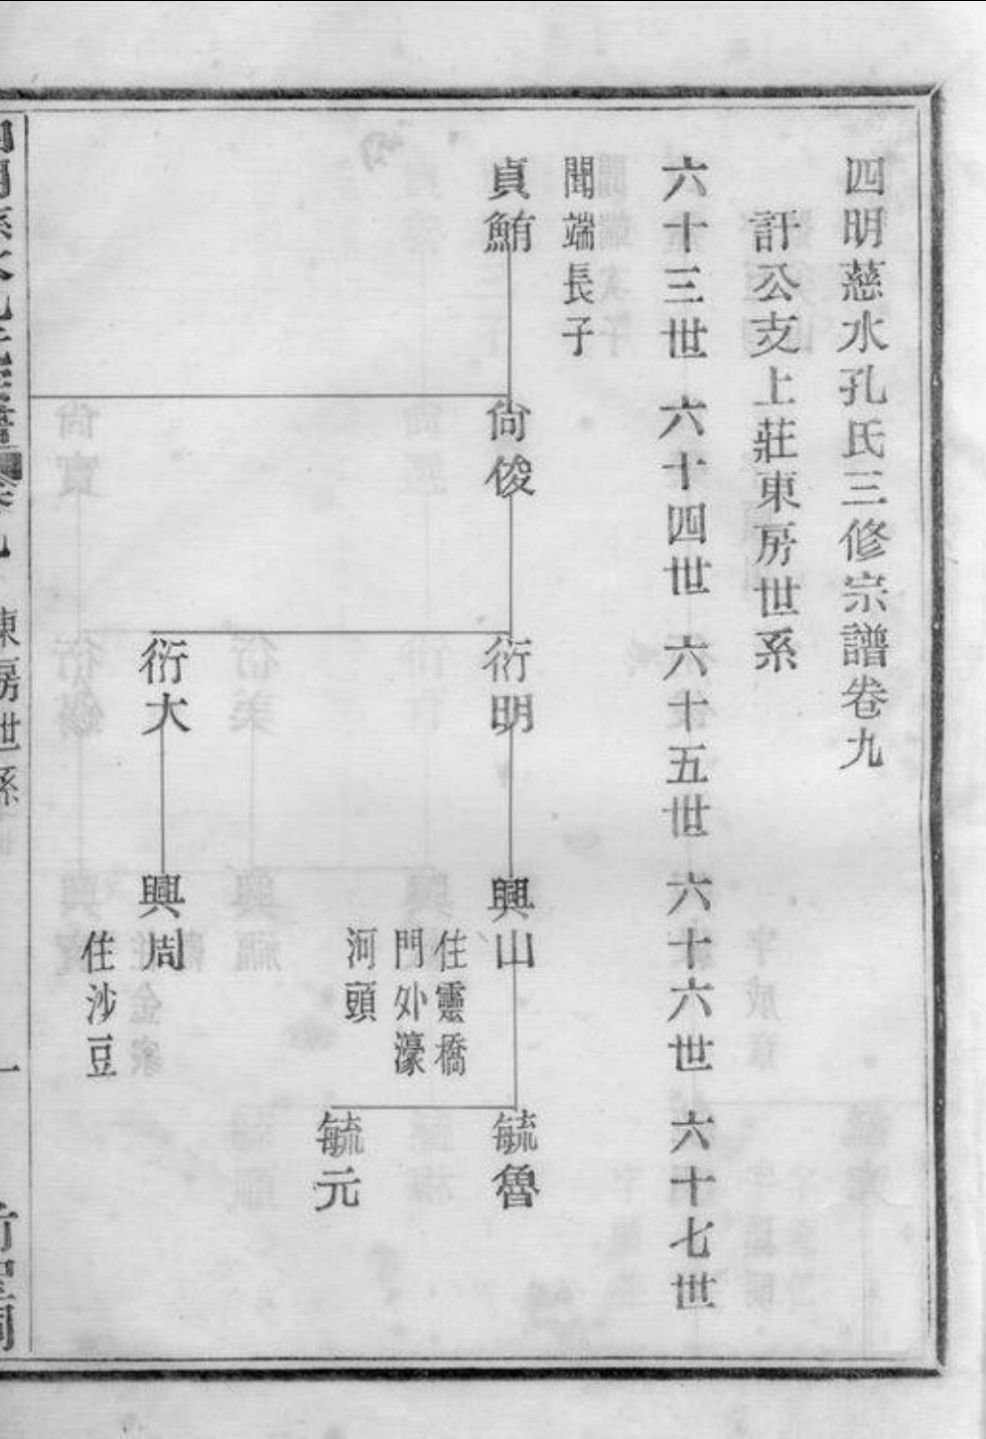 四明慈水孔氏三修宗譜卷九
訐公支上莊東房世系
六十三世
六十四世
六十五世
六十六世
六十七世
聞端長子
貞鮪
尙俊
衍明
興山
住靈橋
門外濠
河頭
毓魯
毓元
衍大
興周
住沙豆
東房世系
一